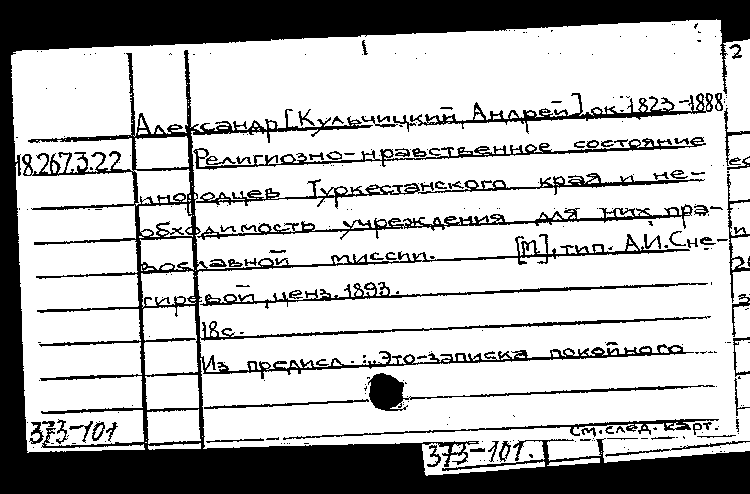 1
Александр [Кульчицкий, Андрей], ок. 1823-1888
18.267.3.22 Религиозно-нравственное состояние
инородцев Туркестанского края и не-
обходимость учреждения для них пра-
вославной миссии. [М], тип. А.И. Сне-
гиревой, ценз. 1893.
18с.
Из предисл.: „Это-записка покойного
373-101
См. след. карт.
373-101.
2